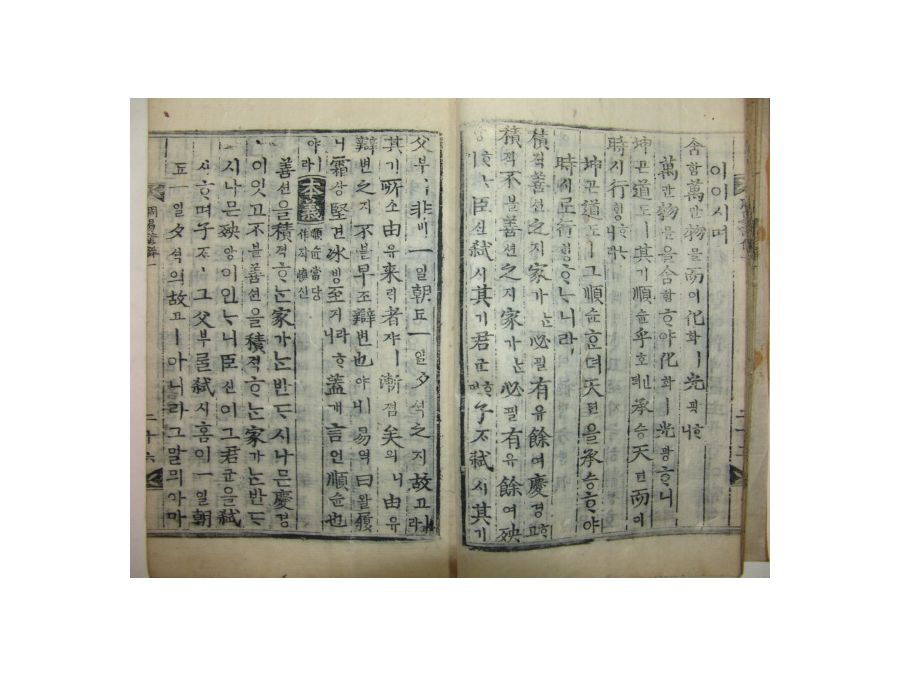 이이시며
含함萬만物믈而이化화ㅣ光광ᄒᆞ니
萬만物믈을含함ᄒᆞ야化화ㅣ光광ᄒᆞ니
坤곤道도ㅣ其기順슌乎호ㅣㄴ뎌承승天텬而이
時시行ᄒᆡᆼᄒᆞᄂᆞ
坤곤道도ㅣ그順슌ᄒᆞᆫ뎌天텬을承승ᄒᆞ야
時시로行ᄒᆡᆼᄒᆞᄂᆞ니라
積젹善션之지家가ᄂᆞᆫ必필有유餘여慶경ᄒᆞ고
積젹不블善션之지家가ᄂᆞᆫ必필有유餘여殃
앙ᄒᆞᄂᆞ臣신弑시其기君군ᄒᆞ며子ᄌᆞ弑시其기
父부ㅣ非비一일朝됴一일夕셕之지故고ㅣ라
其기所소由유来ᄅᆡ者쟈ㅣ漸졈矣의니由유
辯변之지不블早조辯변也야ㅣ니易역曰왈履
니霜상堅견冰빙至지라ᄒᆞ니盖개言언順슌也
야ㅣ라本義順슌當당作작愼신
善션을積젹ᄒᆞᄂᆞᆫ家가ᄂᆞᆫ반ᄃᆞ시나믄慶경
이잇고不블善션을積젹ᄒᆞᄂᆞᆫ家가ᄂᆞᆫ반ᄃᆞ
시나믄殃앙이인ᄂᆞ니臣신이그君군을弑
시ᄒᆞ며子ᄌᆞㅣ그父부를弑시홈이一일朝
됴一일夕셕의故고ㅣ아니라그말믜아마
周易諺解一 二十六